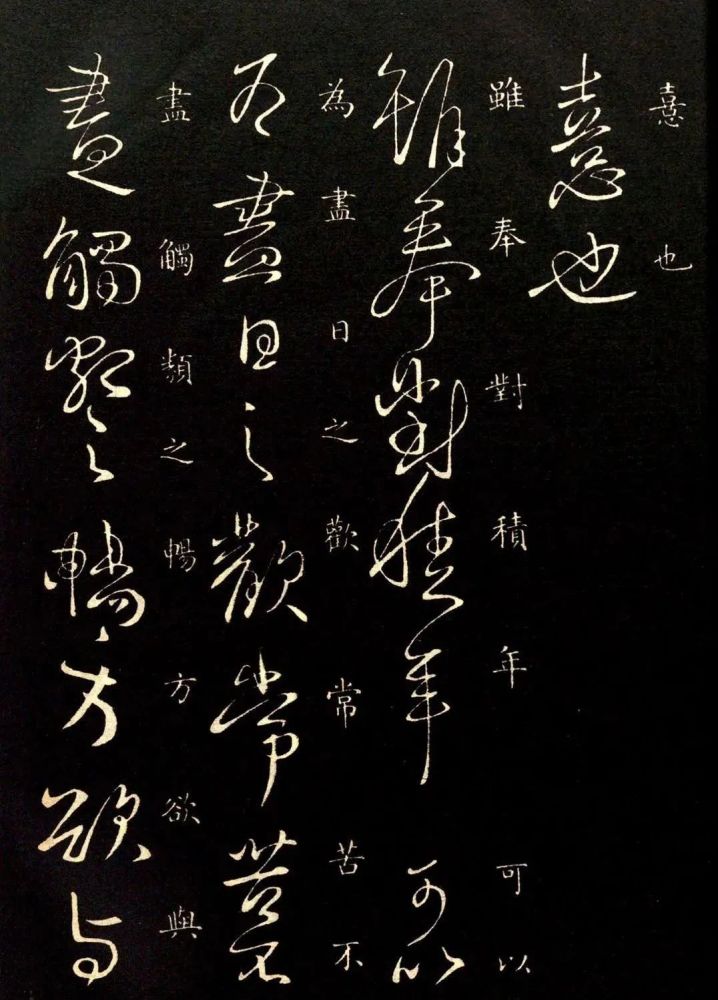 憙也
憙也
雖奉對積年可以
雖奉對積年可以
為盡日之歡常苦不
為盡日之歡常苦不
盡觸類之暢方欲與
盡觸類之暢方欲與